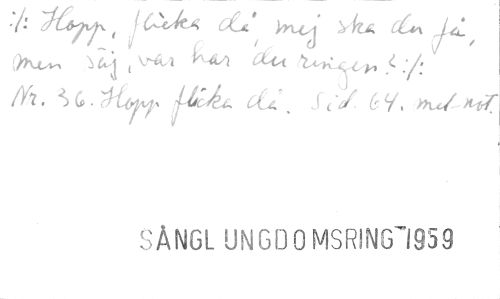 :/: Hopp, flicka då, mej ska du få,
men säj, var har du ringen? :/:
Nr. 36. Hopp flicka då. Sid 64. med not.
SÅNGL UNGDOMSRING 1959